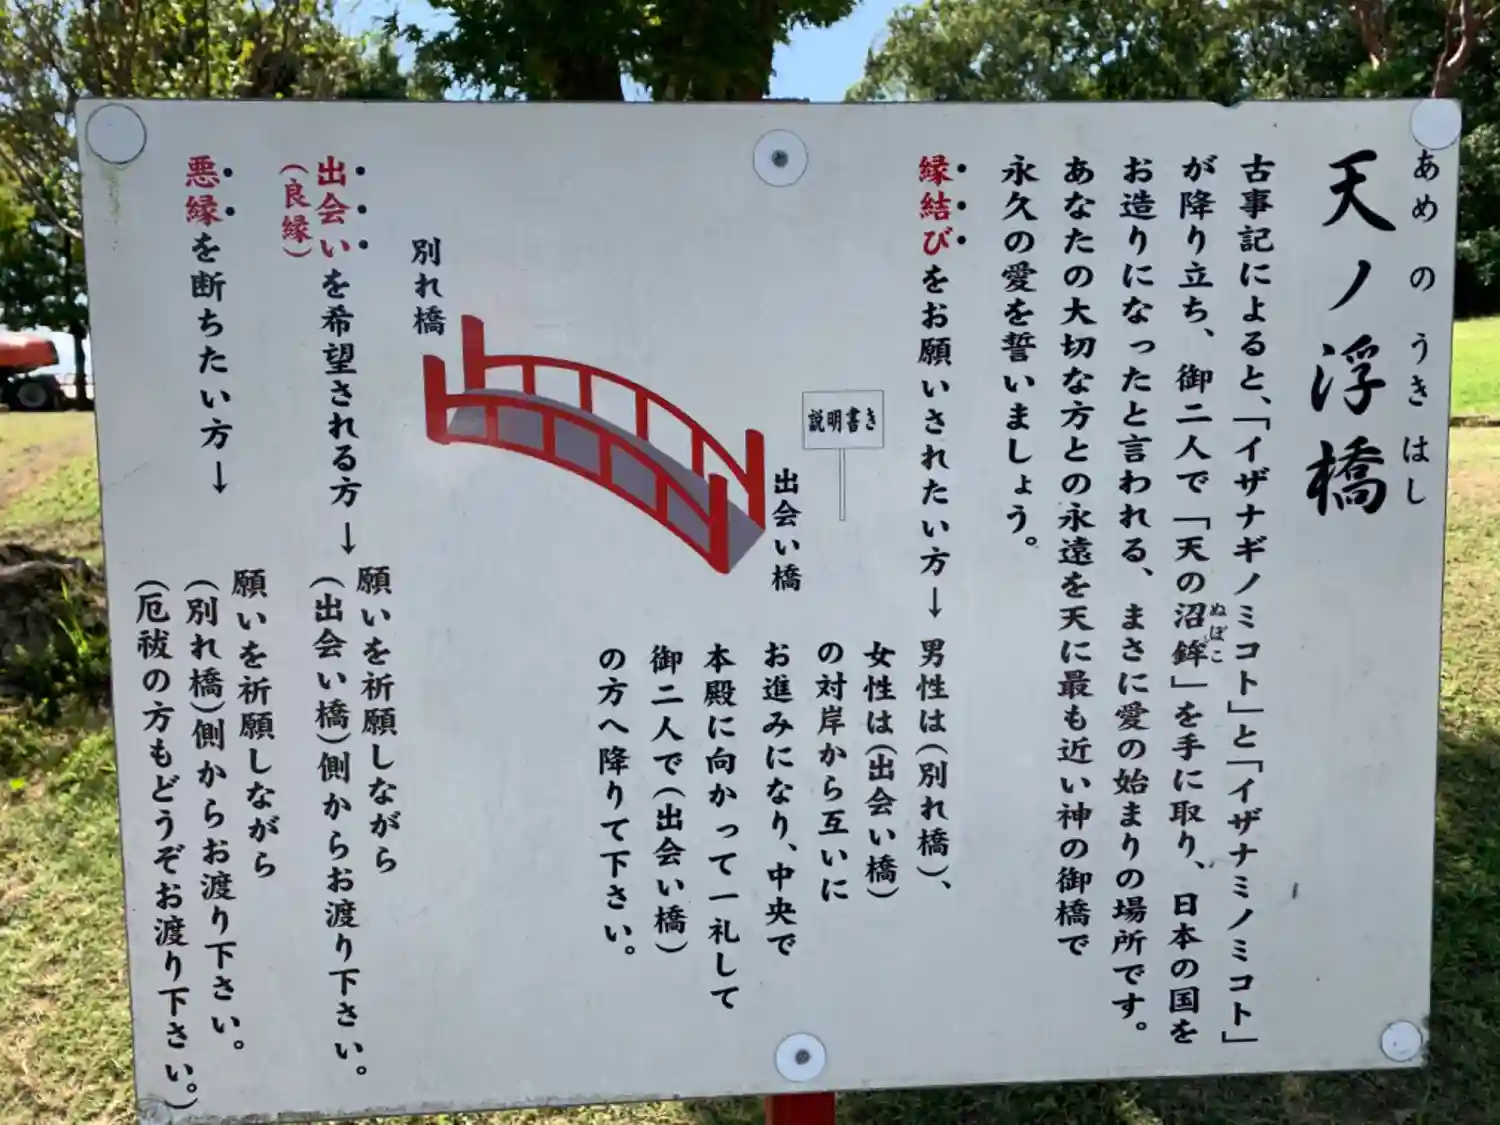 あめ の うき はし
天ノ浮橋
古事記によると、「イザナギノミコト」と「イザナミノミコト」
が降り立ち、御二人で「天の沼鉾」を手に取り、日本の国を
ぬぼこ
お造りになったと言われる、まさに愛の始まりの場所です。
あなたの大切な方との永遠を天に最も近い神の御橋で
永久の愛を誓いましょう。
縁結びをお願いされたい方→男性は(別れ橋)、
女性は(出会い橋)
の対岸から互いに
お進みになり、中央で
本殿に向かって一礼して
御二人で(出会い橋)
の方へ降りて下さい。
説明書き
出会い橋
別れ橋
出会いを希望される方→願いを祈願しながら
(良縁)
(出会い橋)側からお渡り下さい。
悪縁を断ちたい方→願いを祈願しながら
(別れ橋)側からお渡り下さい。
(厄祓の方もどうぞお渡り下さい。)